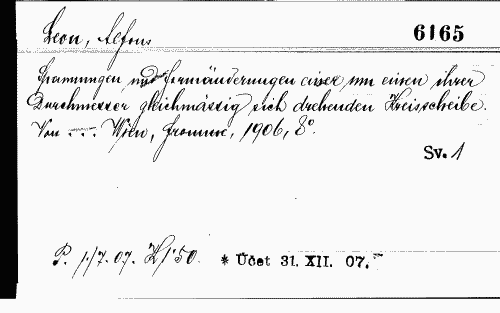 Leon, Alfons
6165
Spannungen und Formänderungen einer um einen ihrer
Durchmesser gleichmässig sich drehenden Kreisscheibe.
Von --- Wien, Fromme, 1906, 8°.
Sv. 1
P. 1/7. 07. K 1·50. * Účet 31. XII. 07.